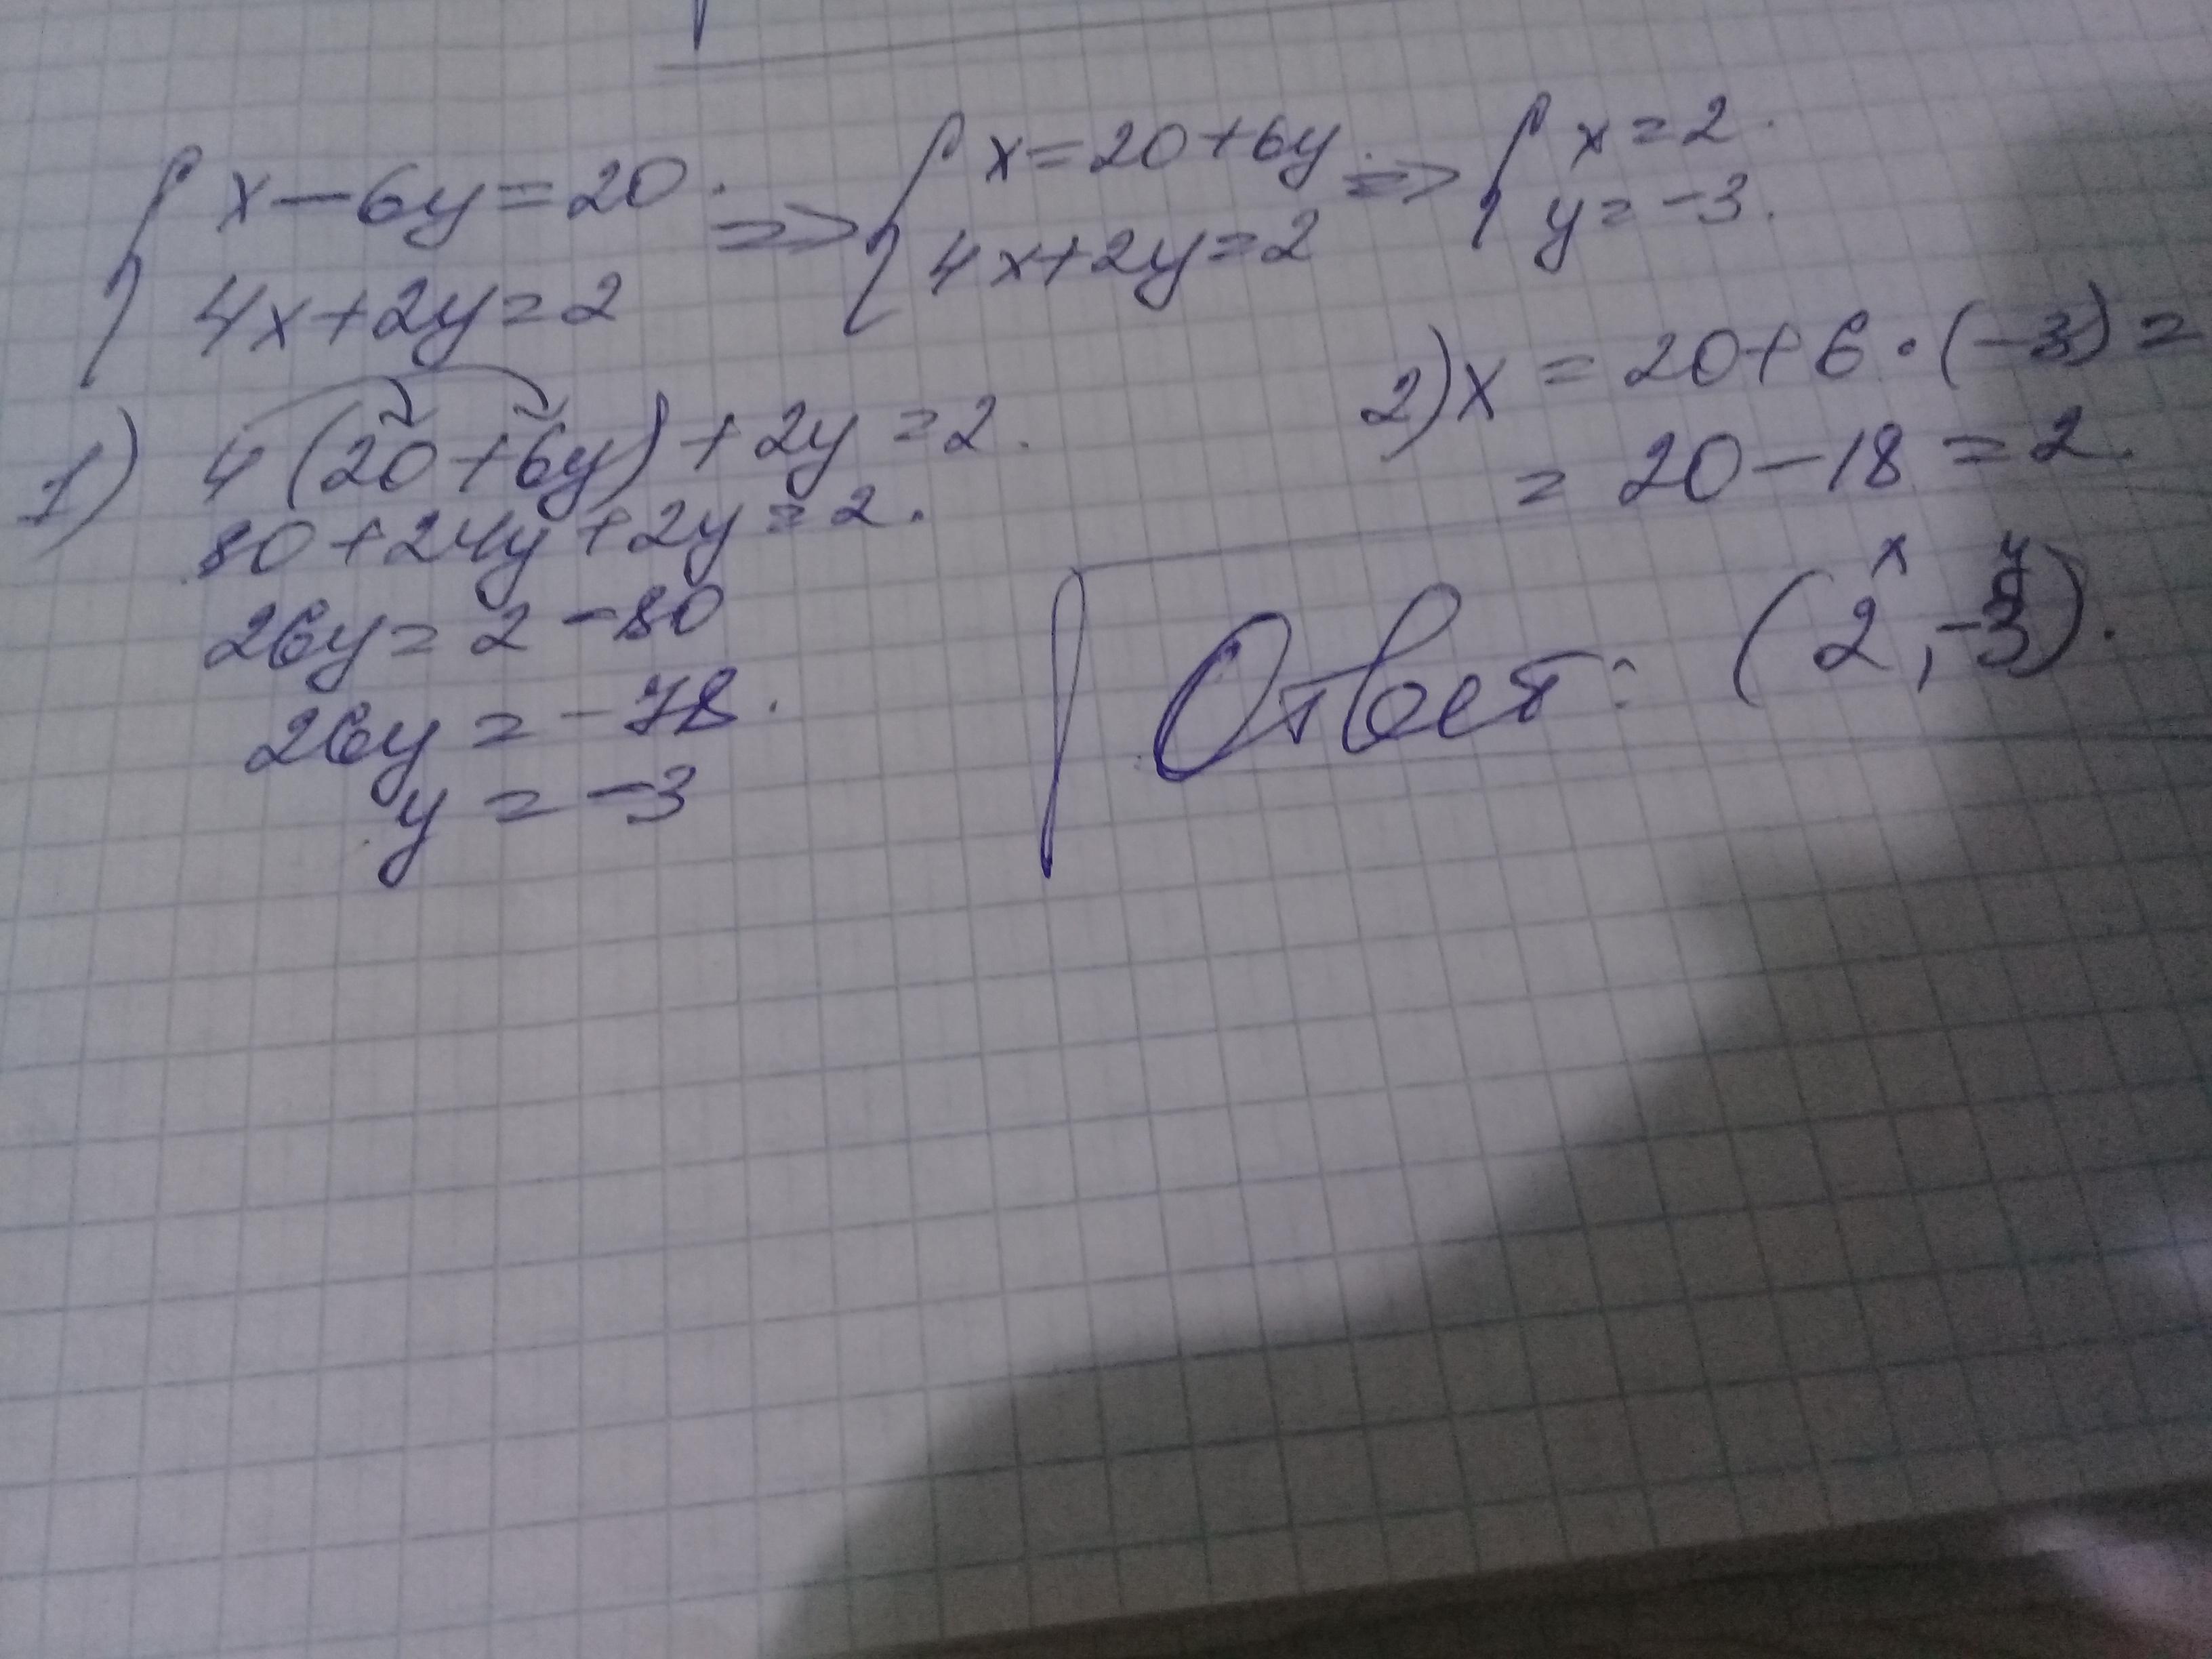 { x - 6y = 20. => { x = 20 + 6y. => { x = 2.
4x + 2y = 2 4x + 2y = 2 y = -3.
1) 4(20 + 6y) + 2y = 2.
80 + 24y + 2y = 2.
26y = 2 - 80
26y = -78.
y = -3
2) x = 20 + 6 · (-3) =
= 20 - 18 = 2.
x y
Ответ: (2, -3).